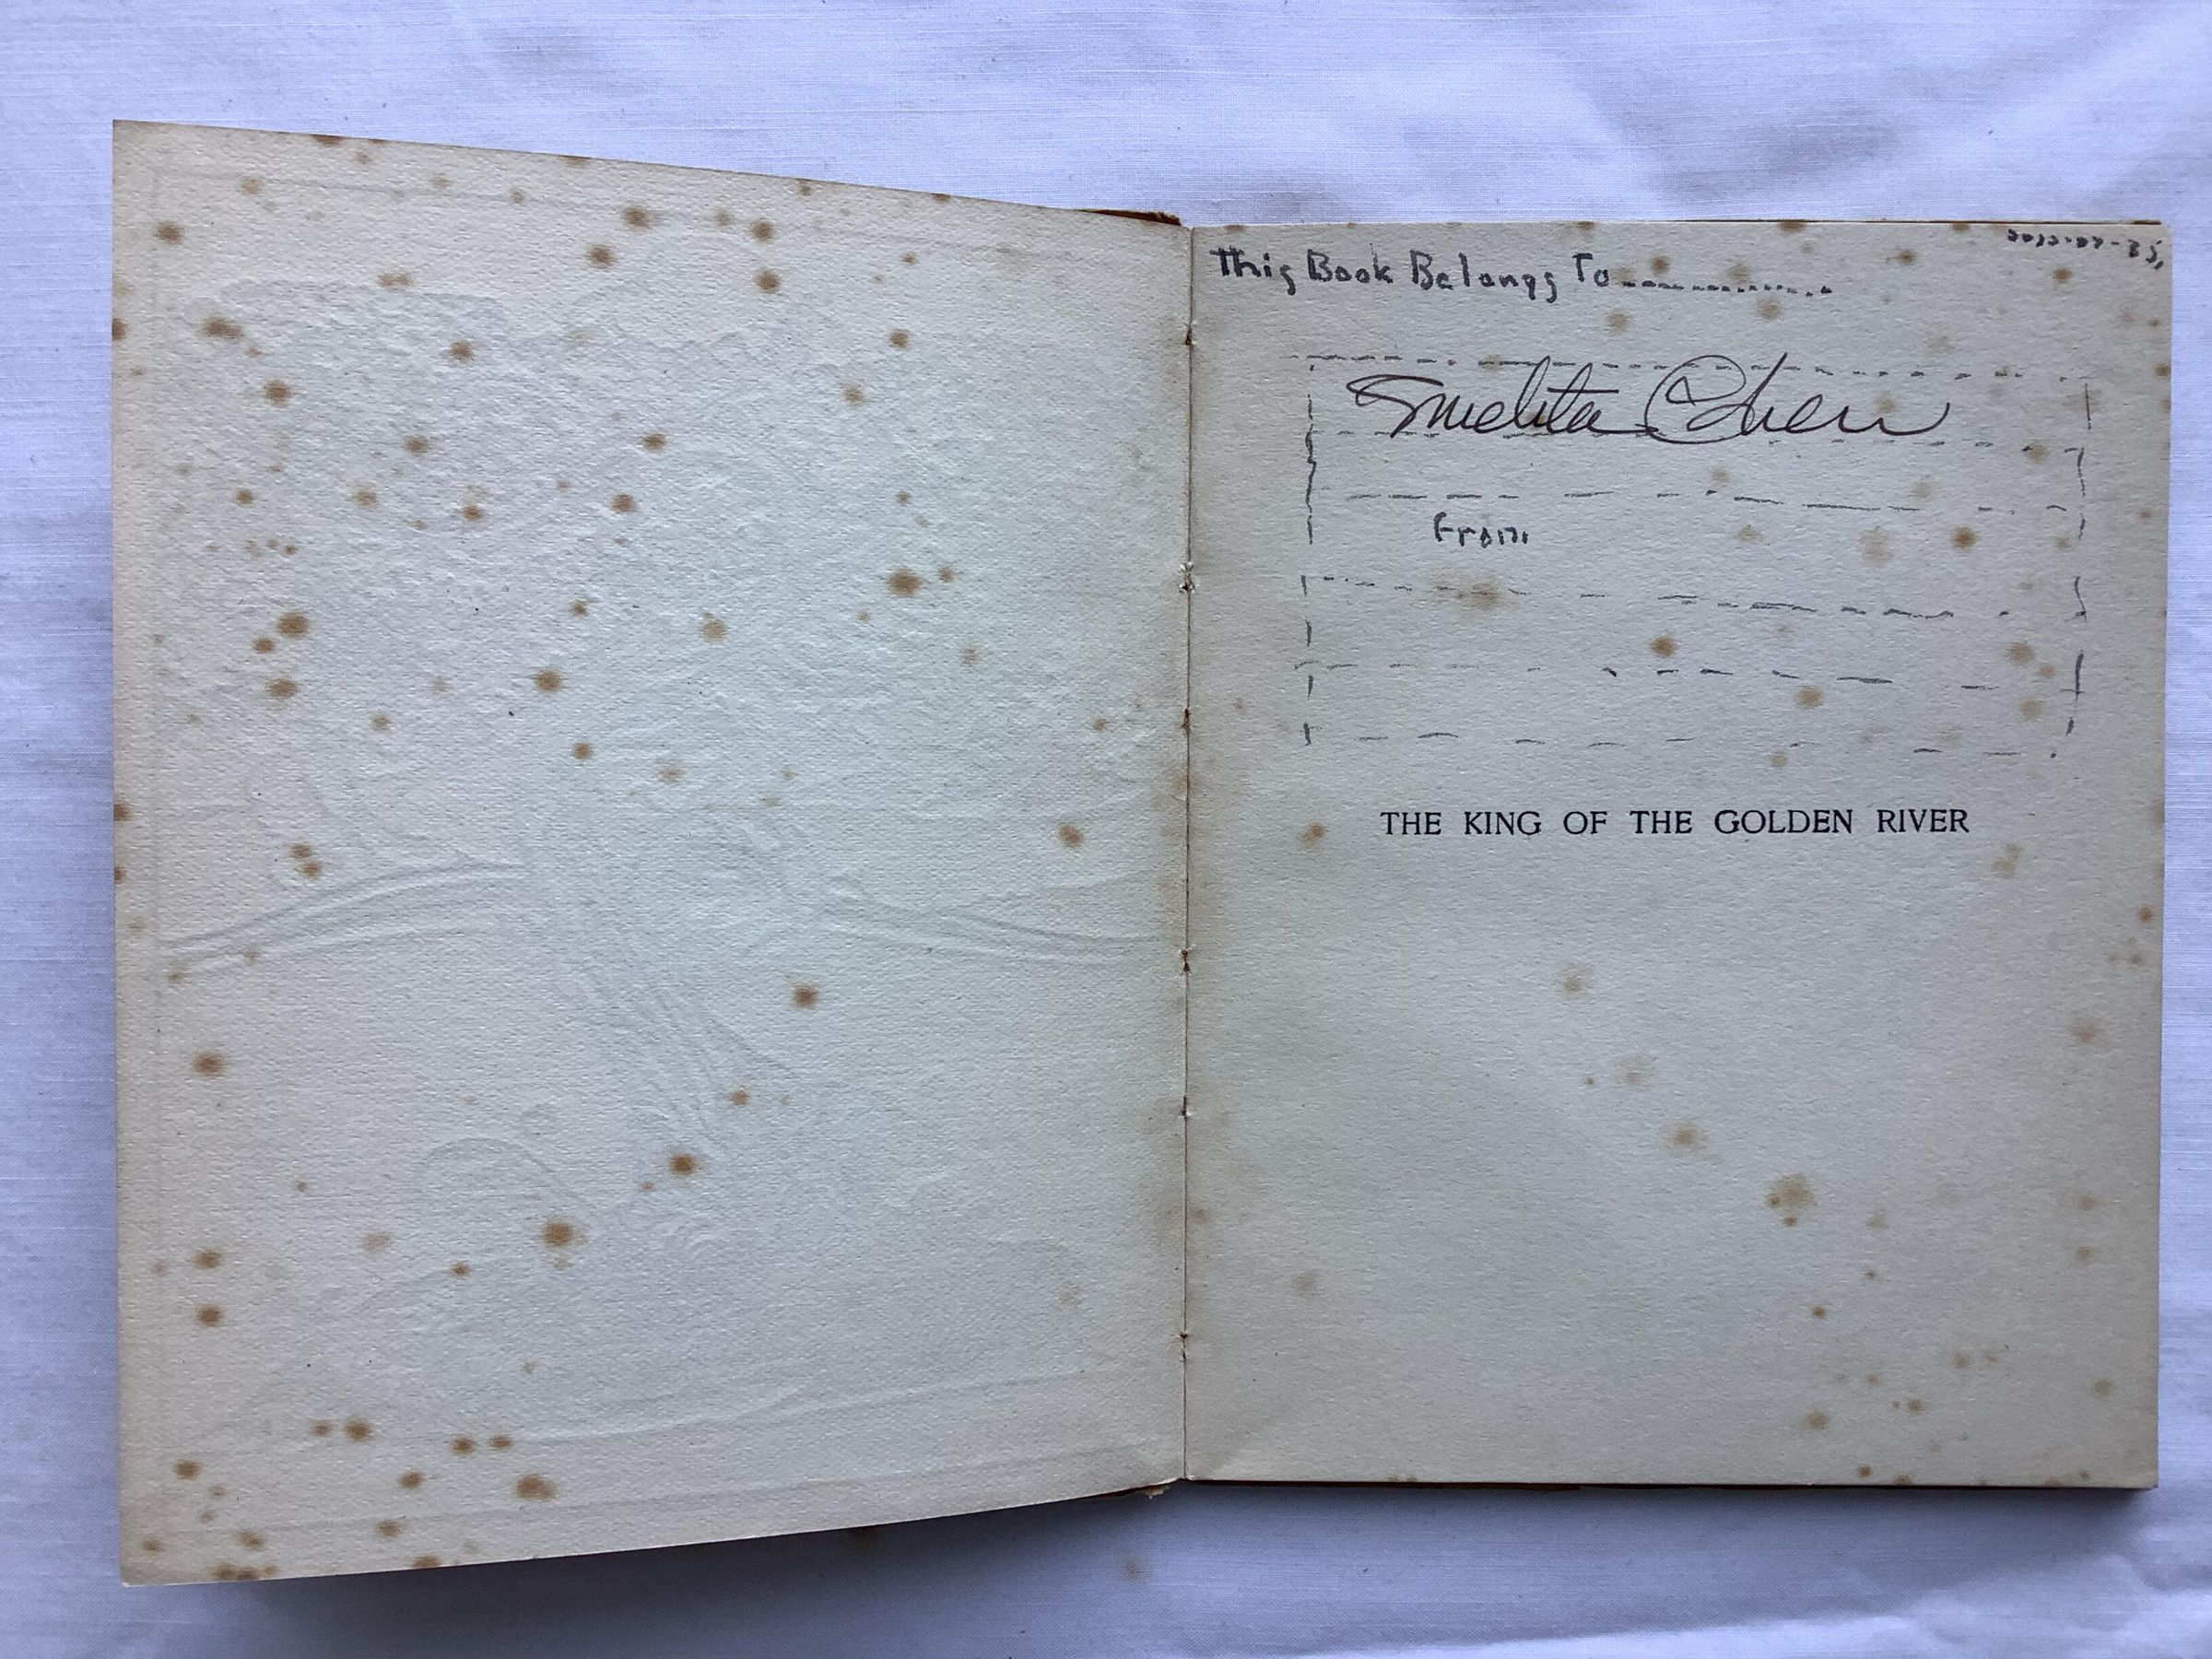 This Book Belongs To..............
Smelita Cohen
From
THE KING OF THE GOLDEN RIVER